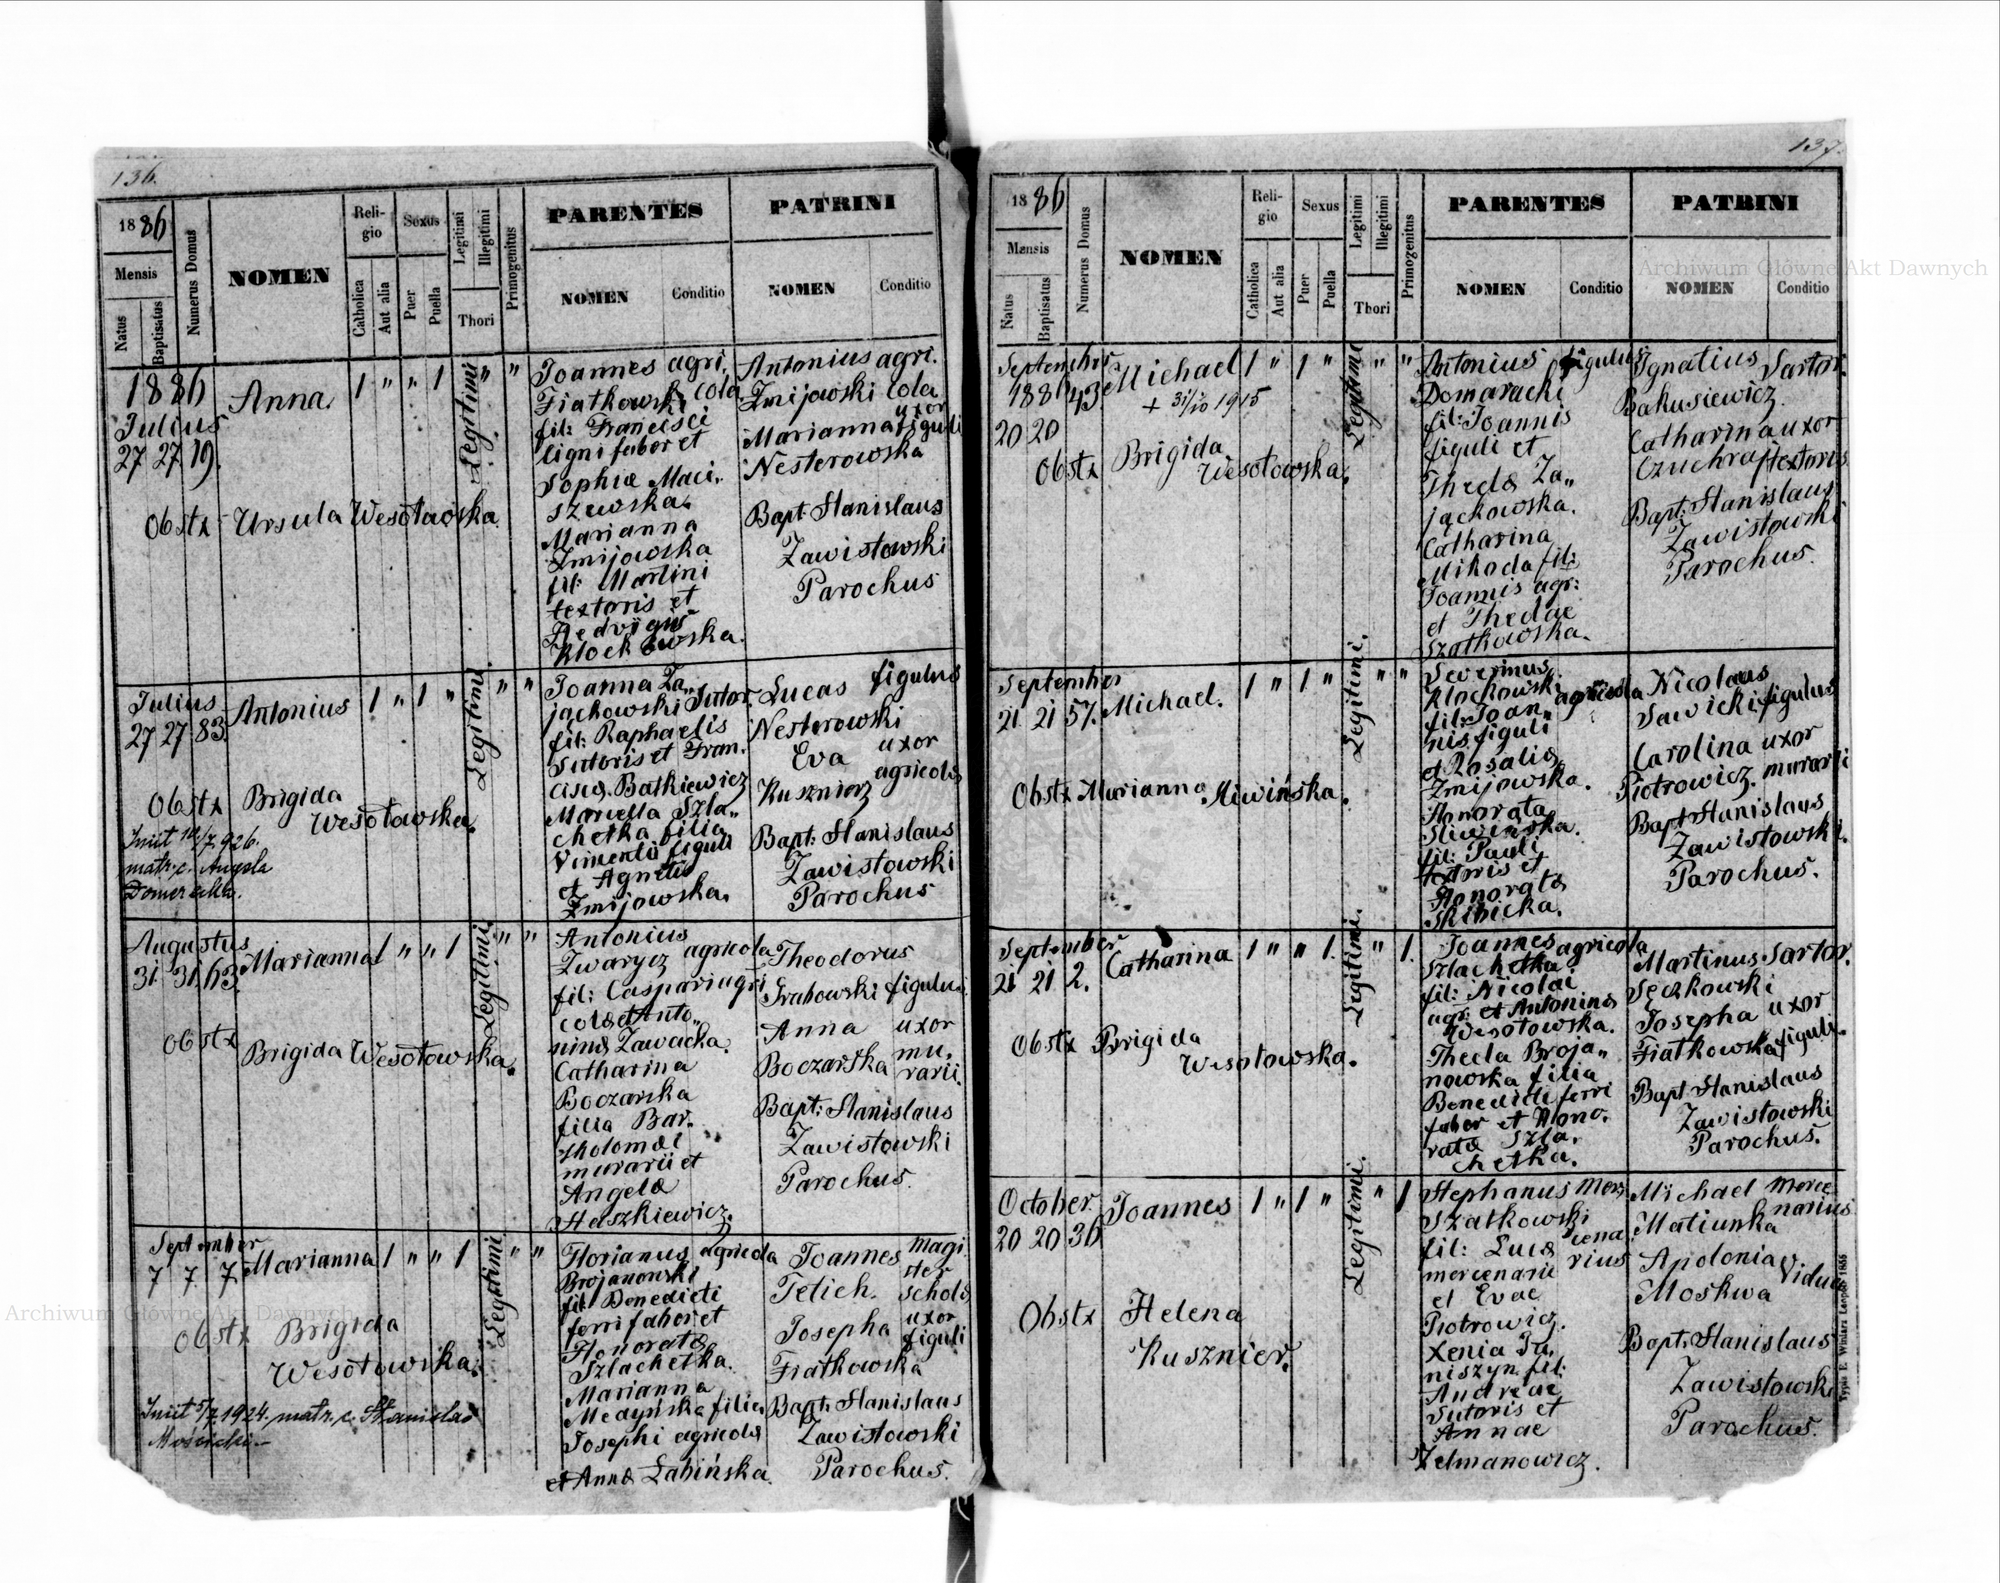 136.
1886
Mensis
Natus
Baptisatus
Numerus Domus
NOMEN
Religio
Catholica
Aut alia
Sexus
Puer
Puella
Legitimi
Illegitimi
Thori
Primogenitus
PARENTES
NOMEN
Conditio
PATRINI
NOMEN
Conditio
1886
Julius
27 27 19.
Anna.
1 " " 1
Legitimi
" "
Obstx Ursula Wesołowska
Joannes agri,
Fiatkowski cola
fil: Francisci
ligni faber et
Sophiæ Maci,,
szewska.
Marianna
Żmijowska
fil: Martini
textoris et
Hedvigis
Kłockowska.
Antonius agri.
Żmijowski cola
Marianna uxor figuli
Nesterowska
Bapt. Stanislaus
Zawistowski
Parochus
Julius
27 27 83.
Antonius
1 " 1 "
Legitimi.
" "
Obstx Brigida
Wesołowska.
Iniit 10/7 926.
matr. c. Angela
Domeracka.
Joanna Za,,
jączkowski Sutor.
fil: Raphaelis
Sutoris et Fran.
cisc. Batkiewicz
Marcella Szla,,
chetka filia
Vincentii figuli
et Agnetis
Żmijowska.
Lucas figulus
Nesterowski
Eva uxor
Kusznierz agricolæ
Bapt: Stanislaus
Zawistowski
Parochus
Augustus
31 31 63.
Marianna
1 " " 1
Legitimi.
" "
Obstx Brigida Wesołowska.
Antonius
Zwarycz agricola
fil: Caspari agri
colæ et Anto,,
ninæ Zawacka.
Catharina
Boczarska
filia Bar.
tholomæi
murarii et
Angelæ
Haszkiewicz.
Theodorus
Grabowski figulus
Anna uxor
Boczarska mu,
rarii.
Bapt: Stanislaus
Zawistowski
Parochus.
September
7 7 7.
Marianna
1 " " 1
Legitimi
" "
Obstx Brigida
Wesołowska.
Iniit 5/7 1924. matr. c. Stanislao
Mościcki.
Florianus agricola
Brojanowski
fil: Benedicti
ferri faber et
Honoratæ
Szlachetka.
Marianna
Medyńska filia
Josephi agricolæ
et Annæ Łabińska.
Joannes Magi
ster
Tetich. scholæ
Josepha uxor figuli
Fiatkowska
Bapt: Stanislaus
Zawistowski
Parochus.
137.
1886
Mensis
Natus
Baptisatus
Numerus Domus
NOMEN
Religio
Catholica
Aut alia
Sexus
Puer
Puella
Legitimi
Illegitimi
Thori
Primogenitus
PARENTES
NOMEN
Conditio
PATRINI
NOMEN
Conditio
September
1886 43
20 20
Michael
+ 31/10 1915
1 " 1 "
Legitimi
" "
Obstx Brigida
Wesołowska.
Antonius figulus
Domaracki
fil: Joannis
figuli et
Theclæ Za,,
jączkowska.
Catharina
Mikoda fil:
Joannis agr:
et Theclae
Szatkowska.
Ignatius Sartor.
Bakusiewicz.
Catharina uxor
Czuchraj textoris.
Bapt: Stanislaus
Zawistowski
Parochus.
September
21 21 57.
Michael.
1 " 1 "
Legitimi.
" "
Obstx Marianna Śliwińska.
Severinus
Kłockowski agricola
fil: Joan,,
nis figuli
et Rosaliæ
Żmijowska.
Honorata
Śliwinska.
fil: Pauli
textoris et
Honoratæ
Skibicka.
Nicolaus
Sawicki figulus
Carolina uxor
Piotrowicz. murarii
Bapt: Stanislaus
Zawistowski.
Parochus.
September
21 21 2.
Catharina
1 " " 1.
Legitimi.
" 1.
Obstx Brigida
Wesołowska.
Joannes agricola
Szlachetka
fil: Nicolai
agr: et Antoninæ
Wesołowska.
Thecla Broja,,
nowska filia
Benedicti ferri
faber et Hono,
ratæ Szla,
chetka.
Martinus Sartor.
Sęczkowski
Josepha uxor
Fiatkowska figuli.
Bapt: Stanislaus
Zawistowski
Parochus.
October.
20 20 36
Joannes
1 " 1 "
Legitimi.
" 1
Obstx Helena
Kusznier.
Stephanus Merc
Szatkowski cena
fil: Lucæ rius
mercenarii
et Evae
Piotrowicz.
Xenia Ja,
niszyn fil:
Andreae
Sutoris et
Annae
Zelmanowicz.
Michael Merce
Matiunka narius
Apolonia Vidua
Moskwa
Bapt: Stanislaus
Zawistowski
Parochus.
Typis E. Winiarz Leopoli 1866
Archiwum Główne Akt Dawnych
Archiwum Główne Akt Dawnych